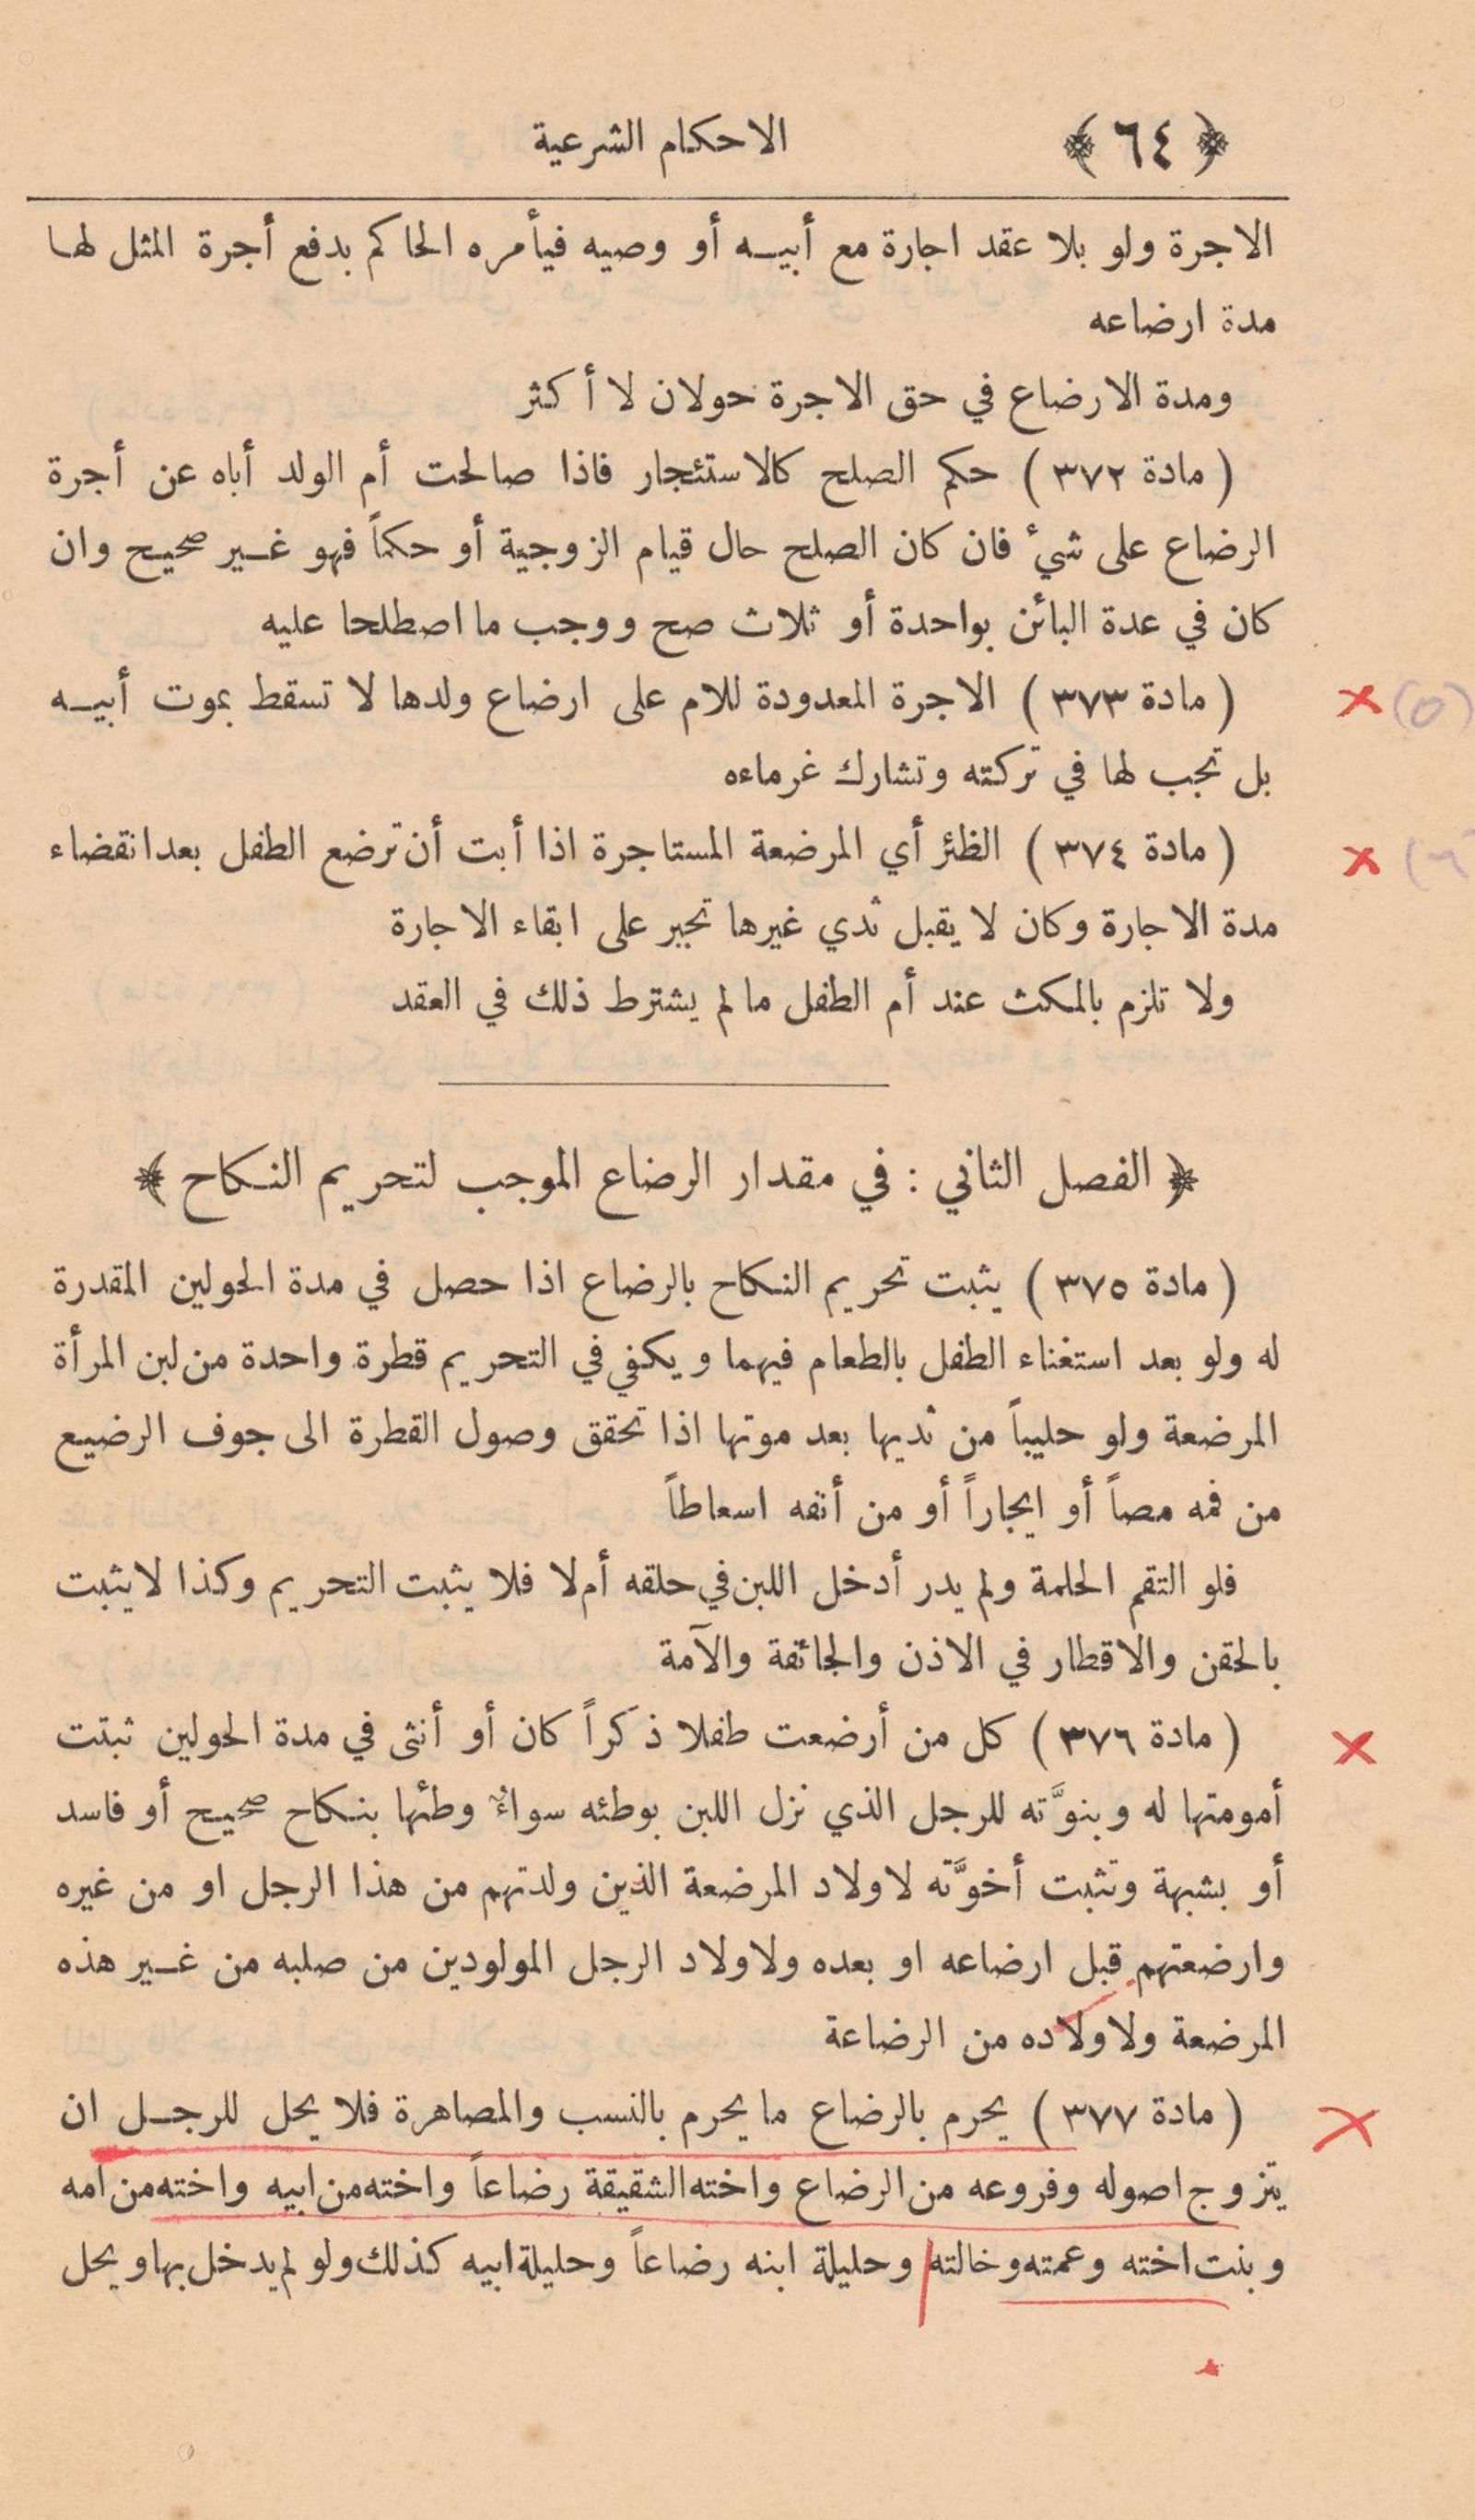 ﴿ ٦٤ ﴾ الاحكام الشرعية
الاجرة ولو بلا عقد اجارة مع أبيه أو وصيه فيأمره الحاكم بدفع أجرة المثل لها
مدة ارضاعه
ومدة الارضاع في حق الاجرة حولان لا أكثر
( مادة ٣٧٢ ) حكم الصلح كالاستئجار فاذا صالحت أم الولد أباه عن أجرة
الرضاع على شئ فان كان الصلح حال قيام الزوجية أو حكماً فهو غير صحيح وان
كان في عدة البائن بواحدة أو ثلاث صح ووجب ما اصطلحا عليه
( مادة ٣٧٣ ) الاجرة المعدودة للام على ارضاع ولدها لا تسقط بموت أبيه
(٥)
بل تجب لها في تركته وتشارك غرماءه
( مادة ٣٧٤ ) الظئر أي المرضعة المستاجرة اذا أبت أن ترضع الطفل بعد انقضاء
(٦
مدة الاجارة وكان لا يقبل ثدي غيرها تجبر على ابقاء الاجارة
ولا تلزم بالمكث عند أم الطفل ما لم يشترط ذلك في العقد
﴿ الفصل الثاني : في مقدار الرضاع الموجب لتحريم النكاح ﴾
( مادة ٣٧٥ ) يثبت تحريم النكاح بالرضاع اذا حصل في مدة الحولين المقدرة
له ولو بعد استغناء الطفل بالطعام فيهما ويكفي في التحريم قطرة واحدة من لبن المرأة
المرضعة ولو حليباً من ثديها بعد موتها اذا تحقق وصول القطرة الى جوف الرضيع
من فمه مصاً أو ايجاراً أو من أنفه اسعاطاً
فلو التقم الحلمة ولم يدر أدخل اللبن في حلقه أم لا فلا يثبت التحريم وكذا لا يثبت
بالحقن والاقطار في الاذن والجائفة والآمة
( مادة ٣٧٦ ) كل من أرضعت طفلا ذكراً كان أو أنثى في مدة الحولين ثبتت
أمومتها له وبنوَّته للرجل الذي نزل اللبن بوطئه سواءٌ وطئها بنكاح صحيح أو فاسد
أو بشبهة وتثبت أخوَّته لاولاد المرضعة الذين ولدتهم من هذا الرجل او من غيره
وارضعتهم قبل ارضاعه او بعده ولاولاد الرجل المولودين من صلبه من غير هذه
المرضعة ولاولاده من الرضاعة
( مادة ٣٧٧ ) يحرم بالرضاع ما يحرم بالنسب والمصاهرة فلا يحل للرجل ان
يتزوج اصوله وفروعه من الرضاع واخته الشقيقة رضاعاً واخته من ابيه واخته من امه
وبنت اخته وعمته وخالته وحليلة ابنه رضاعاً وحليلة ابيه كذلك ولو لم يدخل بها ويحل